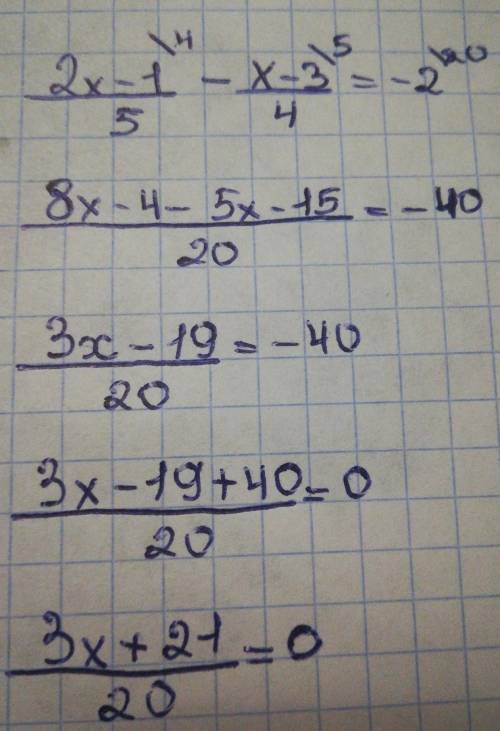 (2x - 1)/5 \4 - (x - 3)/4 \5 = -2 \20
(8x - 4 - 5x - 15)/20 = -40
(3x - 19)/20 = -40
(3x - 19 + 40)/20 = 0
(3x + 21)/20 = 0